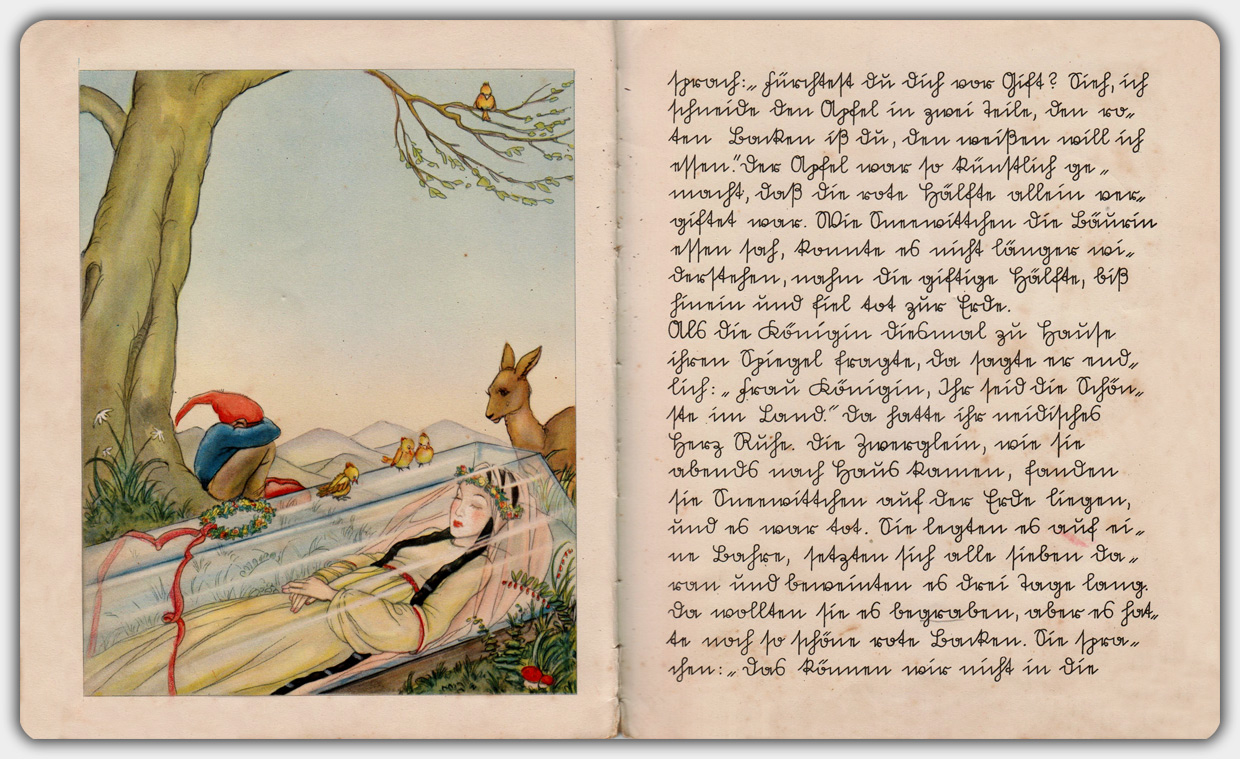 sprach: „Fürchtest du dich vor Gift? Sieh, ich
schneide den Apfel in zwei Teile, den ro-
ten Backen iß du, den weißen will ich
essen." Der Apfel war so künstlich ge-
macht, daß die rote Hälfte allein ver-
giftet war. Wie Sneewittchen die Bäurin
essen sah, konnte es nicht länger wi-
derstehen, nahm die giftige Hälfte, biß
hinein und fiel tot zur Erde.
Als die Königin diesmal zu Hause
ihren Spiegel fragte, da sagte er end-
lich: „Frau Königin, Ihr seid die Schön-
ste im Land." Da hatte ihr neidisches
Herz Ruhe. Die Zwerglein, wie sie
abends nach Haus kamen, fanden
sie Sneewittchen auf der Erde liegen,
und es war tot. Sie legten es auf ei-
ne Bahre, setzten sich alle sieben da-
ran und beweinten es drei Tage lang.
Da wollten sie es begraben, aber es hat-
te noch so schöne rote Backen. Sie spra-
chen: „Das können wir nicht in die